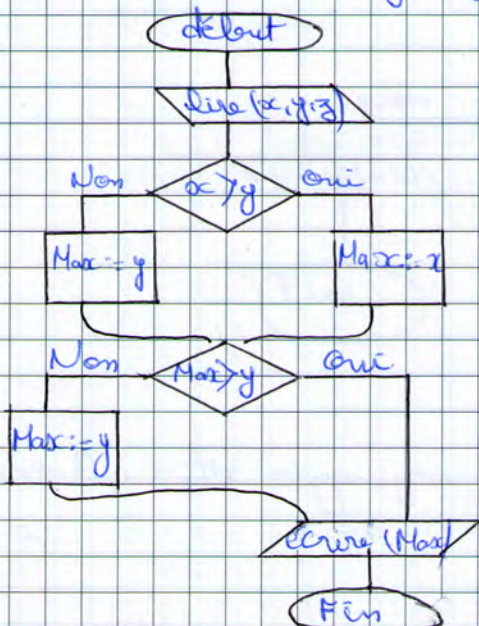 début
lire (x,y,z)
Non
x > y
Oui
Max := y
Max := x
Non
Max > y
Oui
Max := y
écrire (Max)
Fin